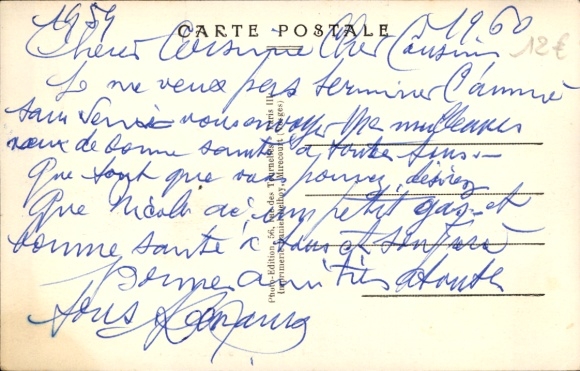 1959 1960
CARTE POSTALE
12€
Cher Cousine Cher Cousin
Je ne veux pas terminer l'année
sans venir vous envoyer mes meilleures
vœux de bonne santé à toutes tous
Que tout que vous pouvez désirez
Que Nicole petit gas et
bonne santé à tous et
Bonne amitiés à toutes
tous
Photo-Edition, 56, rue des Tournelles, Paris III
(Imprimerie Mirecourt (Vosges)